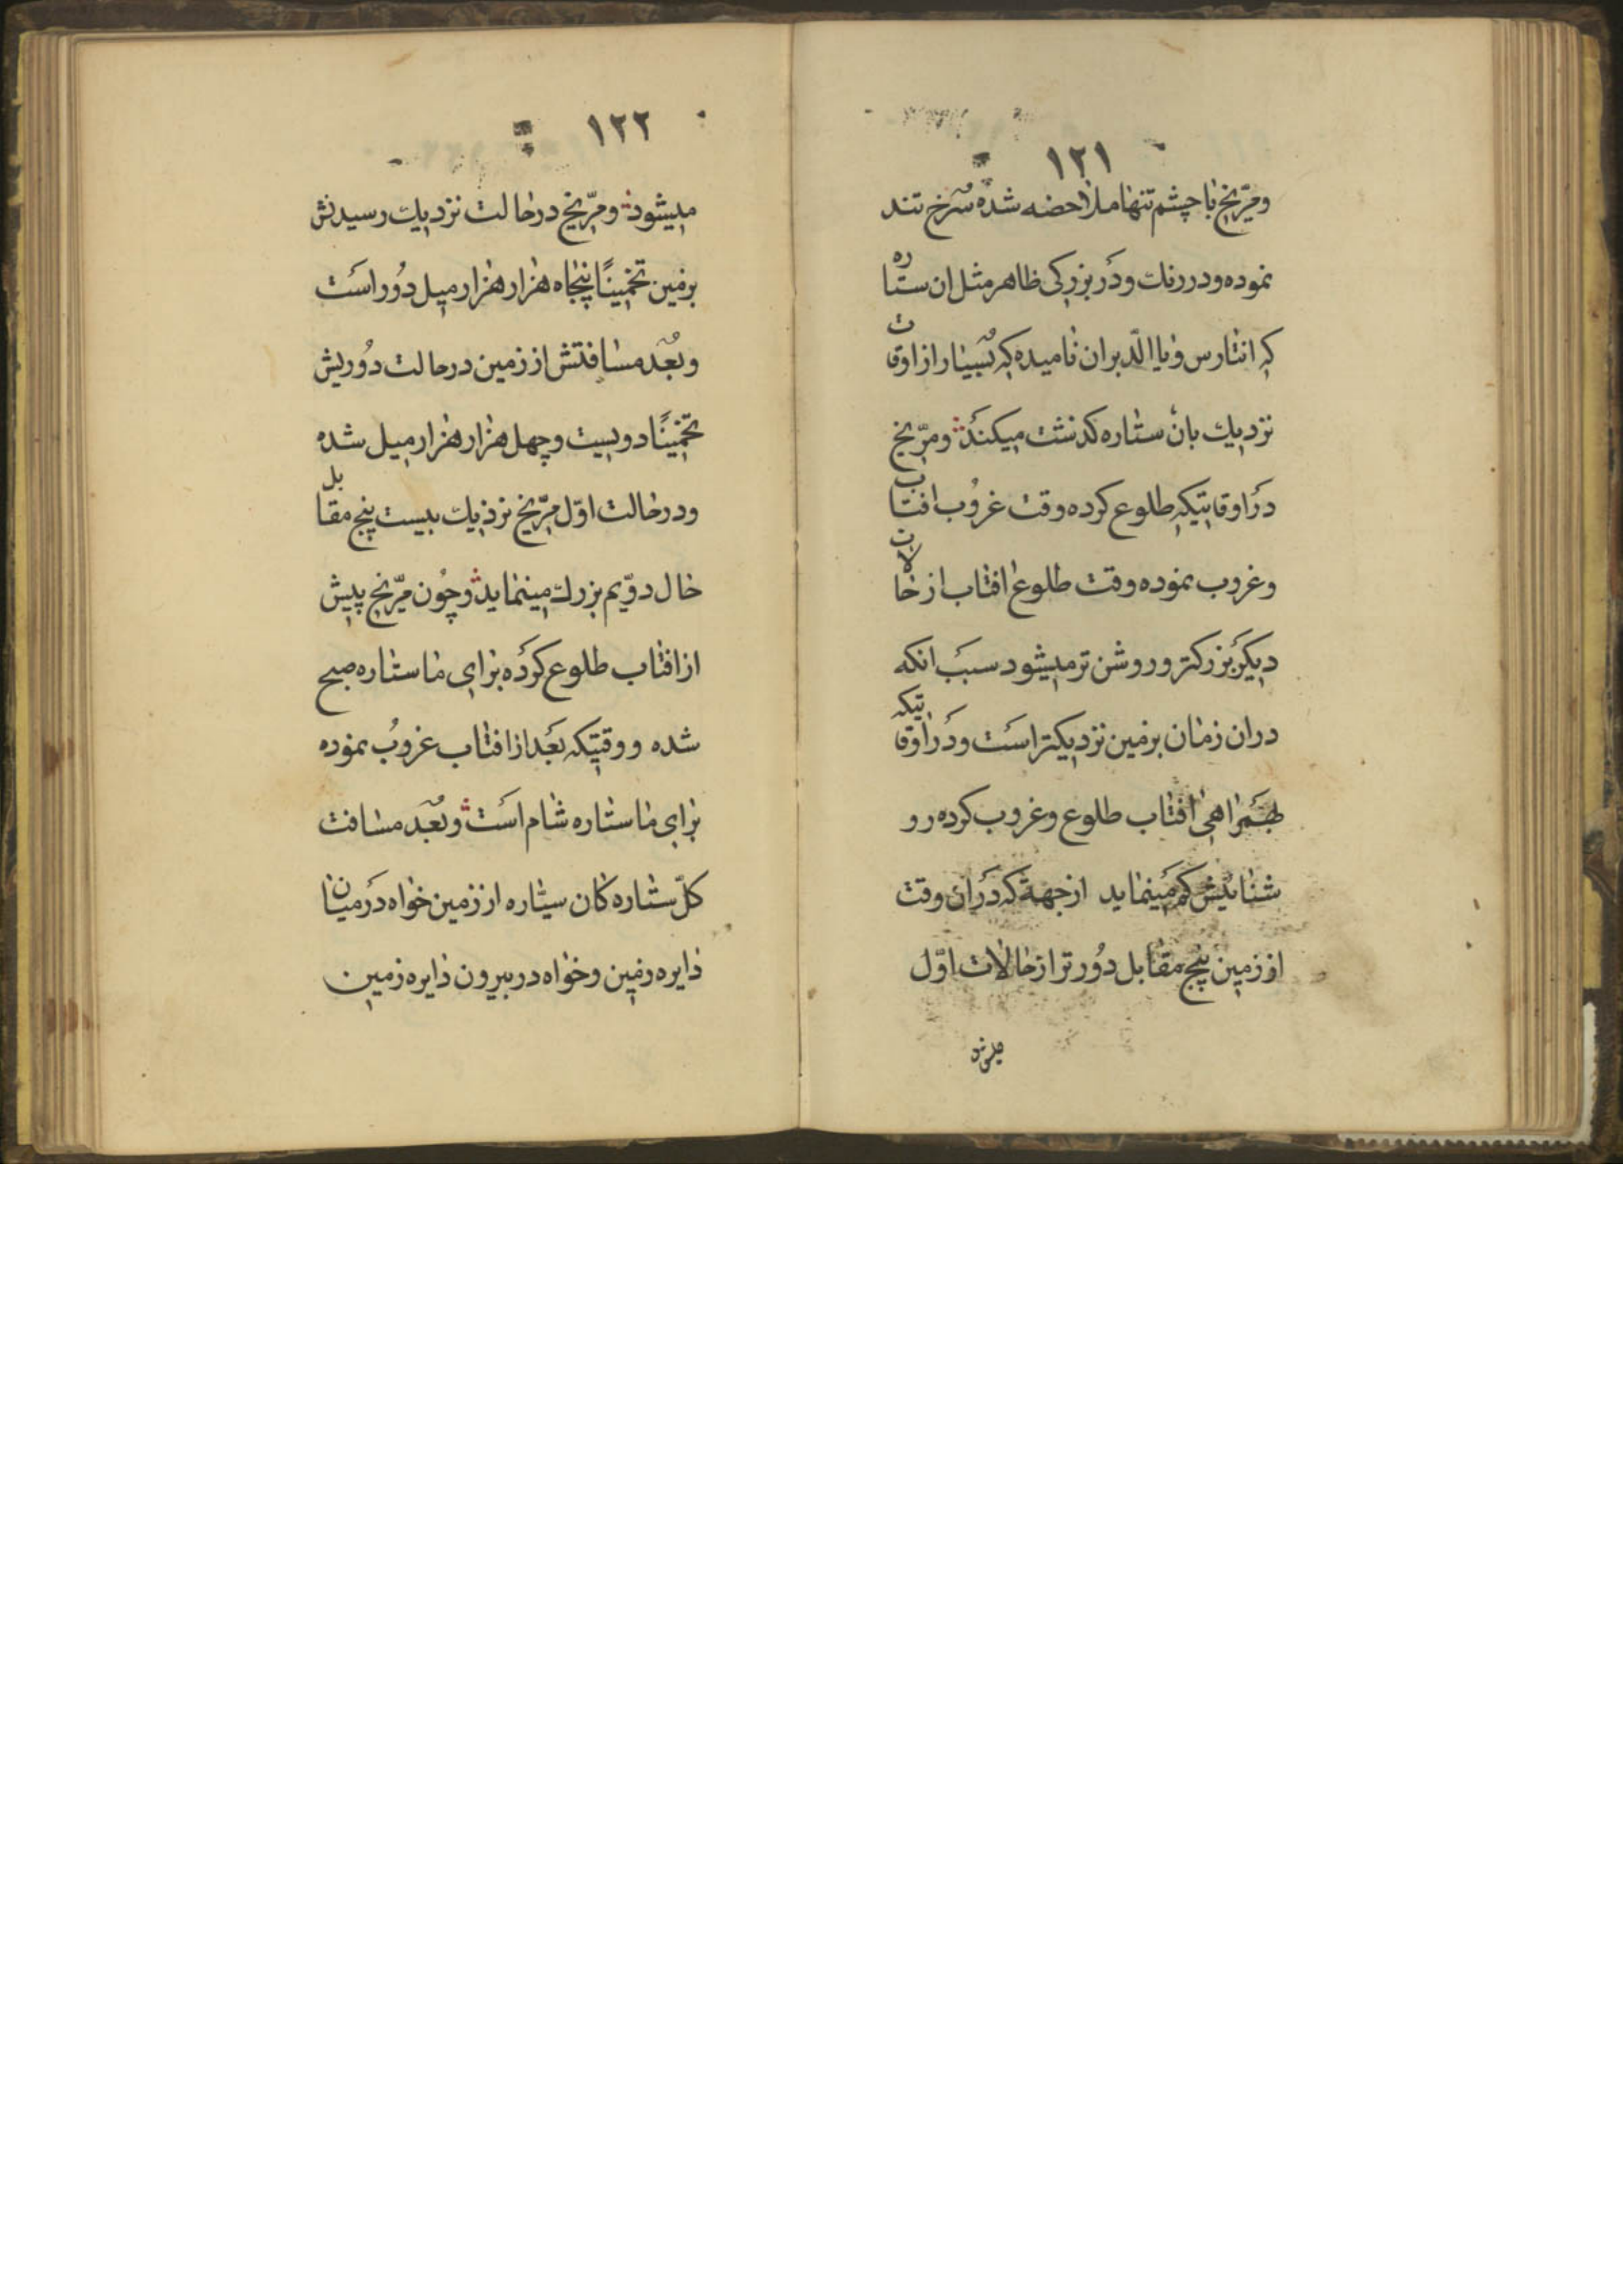 ١٢١
ومرّیخ با چشم تنها ملاحضه شده سُرخ تند
نموده و در رنك و دَر بزرکی ظاهر مثل ان ستاره
که انتارس و یا الدّبران نامیده که بسیار از اوقات
نزدیك بان ستاره کذشت میکند ومرّیخ
دَر اوقاتیکه طلوع کرده وقت غروُب افتاب
وغروب نموده وقت طلوع افتاب از حالات
دیکر بزرکتر و روشن تر میشود سبب انکه
دران زمان برمین نزدیکتر است و دَر اوقاتیکه
بهمراهی افتاب طلوع وغروب کرده رو
شنائیش کم مینماید از جهة که دَران وقت
از زمین پنج مقابل دُور تر از حالات اوّل
میشود
١٢٢
میشود ومرّیخ در حالت نزدیك رسیدنش
برمین تخمینًا پنجاه هزار هزار میل دُور است
وبُعد مسافتش از زمین در حالت دوُریش
تخمینًا دویست و چهل هزار هزار میل شده
و در حالت اوّل مرّیخ نزدیك بیست پنج مقابل
حال دوّیم بزرك مینماید و چُون مرّیخ پیش
از افتاب طلوع کرَده برای ما ستاره صبح
شده و وقتیکه بَعد از افتاب غروُب نموده
برای ما ستاره شام است وبُعد مسافت
کلّ ستاره کان سیّاره از زمین خواه دَر میان
دایره زمین و خواه در بیرون دایره زمین